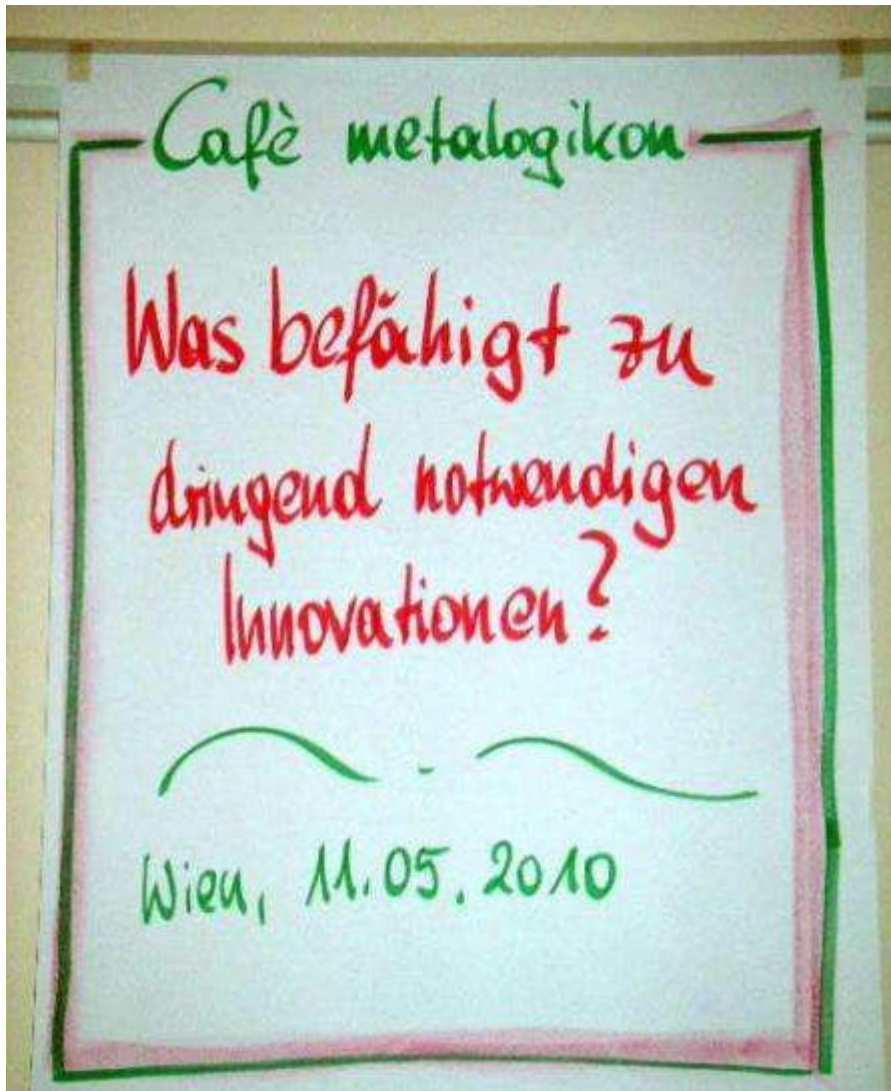 Cafè metalogikon
Was befähigt zu
dringend notwendigen
Innovationen?
Wien, 11.05.2010